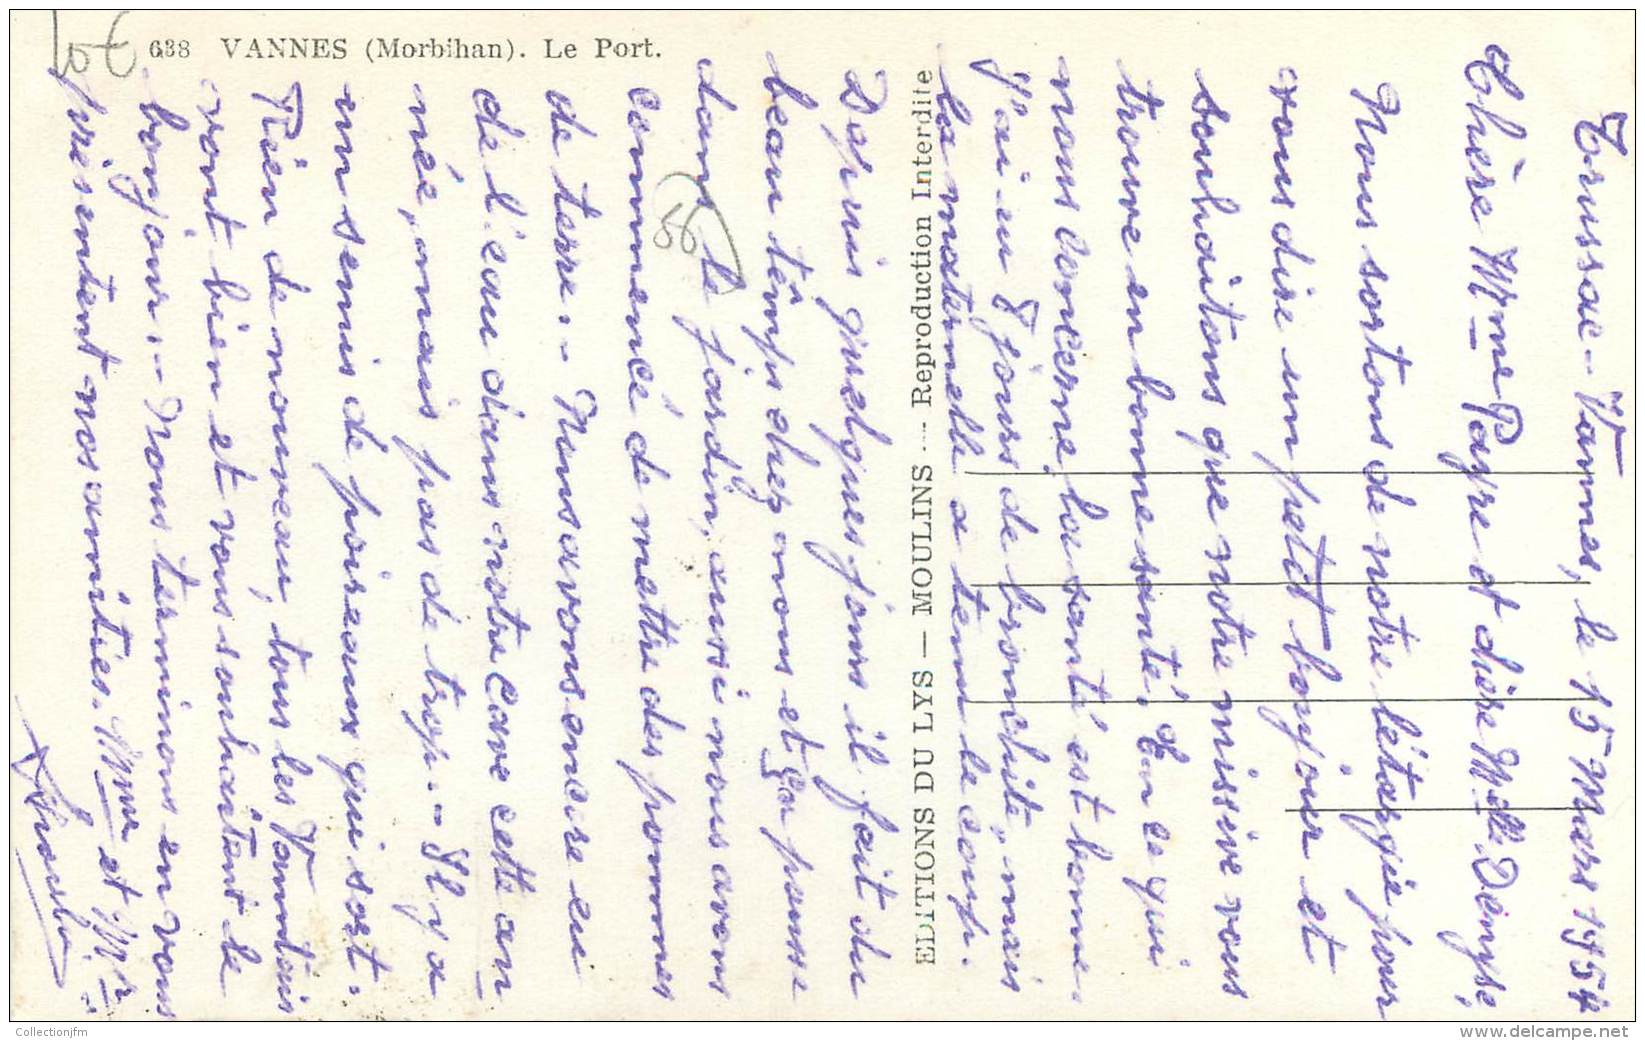 10 €
638 VANNES (Morbihan). Le Port.
EDITIONS DU LYS — MOULINS --- Reproduction Interdite
56
Trussac - Vannes, le 15 Mars 1954
Chère Mme Payre et chère Melle Denyse,
Nous sortons de notre létargie pour
vous dire un petit bonjour et
souhaitons que notre missive vous
trouve en bonne santé. En ce qui
nous concerne, la santé est bonne.
J'ai eu 8 jours de bronchite, mais
la maternelle a tenu le coup.
Depuis quelques jours il fait du
beau temps chez nous et ça pousse
dans le jardin, aussi nous avons
commencé de mettre des pommes
de terre. - Nous avons encore eu
de l'eau dans notre cave cette an
née, mais pas de trop. - Il y a
un semis de poireaux qui sort.
Rien de nouveau, tous les Vannetais
vont bien et vous souhaitent le
bonjour. - Nous terminons en vous
présentant nos amitiés. Mme et Mr
Collectionjfm
www.delcampe.net